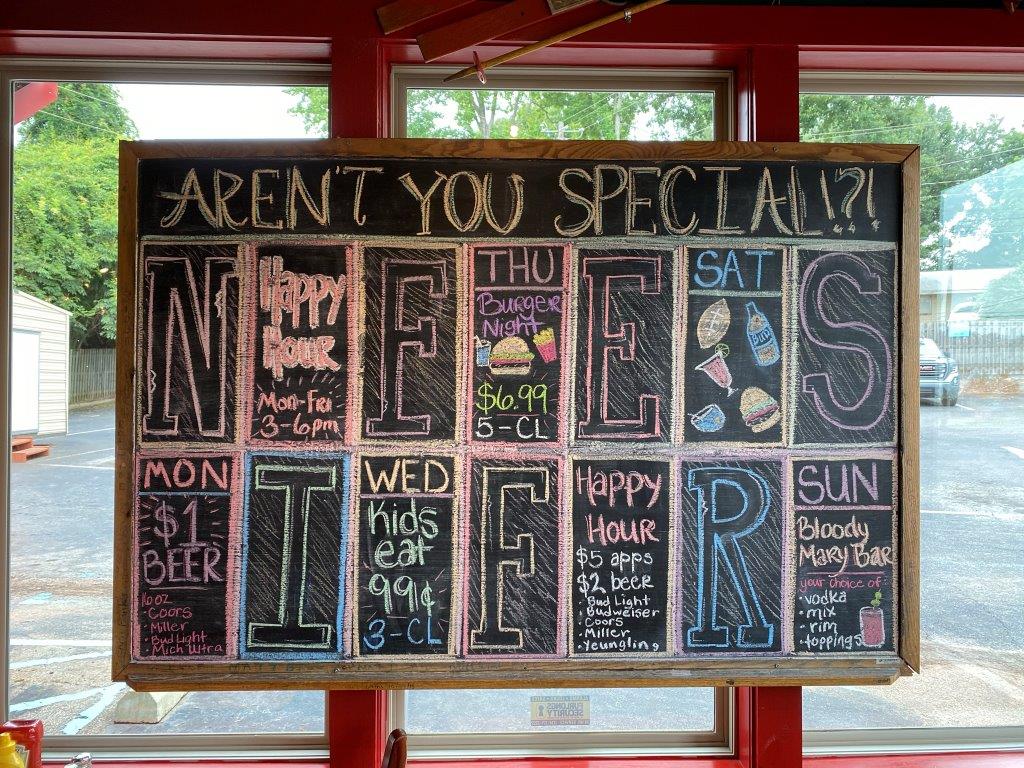 AREN'T YOU SPECIAL!?!
N
Happy
Hour
Mon-Fri
3-6pm
F
THU
Burger
Night
$6.99
5-CL
E
SAT
Bud
S
MON
$1
BEER
16oz
·Coors
·Miller
·Bud Light
·Mich Ultra
I
WED
Kids
eat
99¢
3-CL
F
Happy
Hour
$5 apps
$2 beer
·Bud Light
·Budweiser
·Coors
·Miller
·Yeungling
R
SUN
Bloody
Mary Bar
your choice of:
·vodka
·mix
·rim
·toppings
FURLONGS
SECURITY